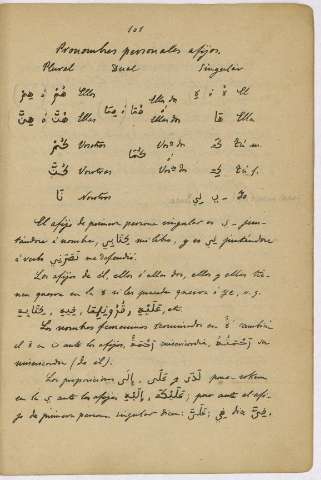 101
Pronombres personales afijos.
Plural Dual Singular
هُمْ ó هِمْ Ellos هُمَا ó هِمَا Ellos dos هُ ó هِ El
هُنَّ ó هِنَّ Ellas Ellas dos هَا Ella
كُمْ Vosotros كُمَا Vos.os dos كَ Tú m.
كُنَّ Vosotras Vos.as dos كِ Tú f.
نَا Nosotros ي - نِي Yo
El afijo de primera persona singular es ي jun-
tándose á nombre, كِتَابِي mi libro, y es نِي juntándose
á verbo نَصَرَنِي me defendió.
Los afijos de él, ellos ó ellas dos, ellos y ellas tie-
nen quesra en la ه si les precede quesra ó ye, v.g.
عَلَيْهِ, فِيهِ, كِتَابِهِ, etc.
Los nombres femeninos terminados en ة cambian
el ة en ت ante los afijos, رَحْمَة misericordia, رَحْمَتُهُ su
misericordia (de él).
Las preposiciones لَدَى y عَلَى, إِلَى
en la ي ante los afijos عَلَيْكَ, إِلَيْهِ; pero ante el afi-
jo de primera persona singular dicen: عَلَيَّ; فِي dice فِيَّ.